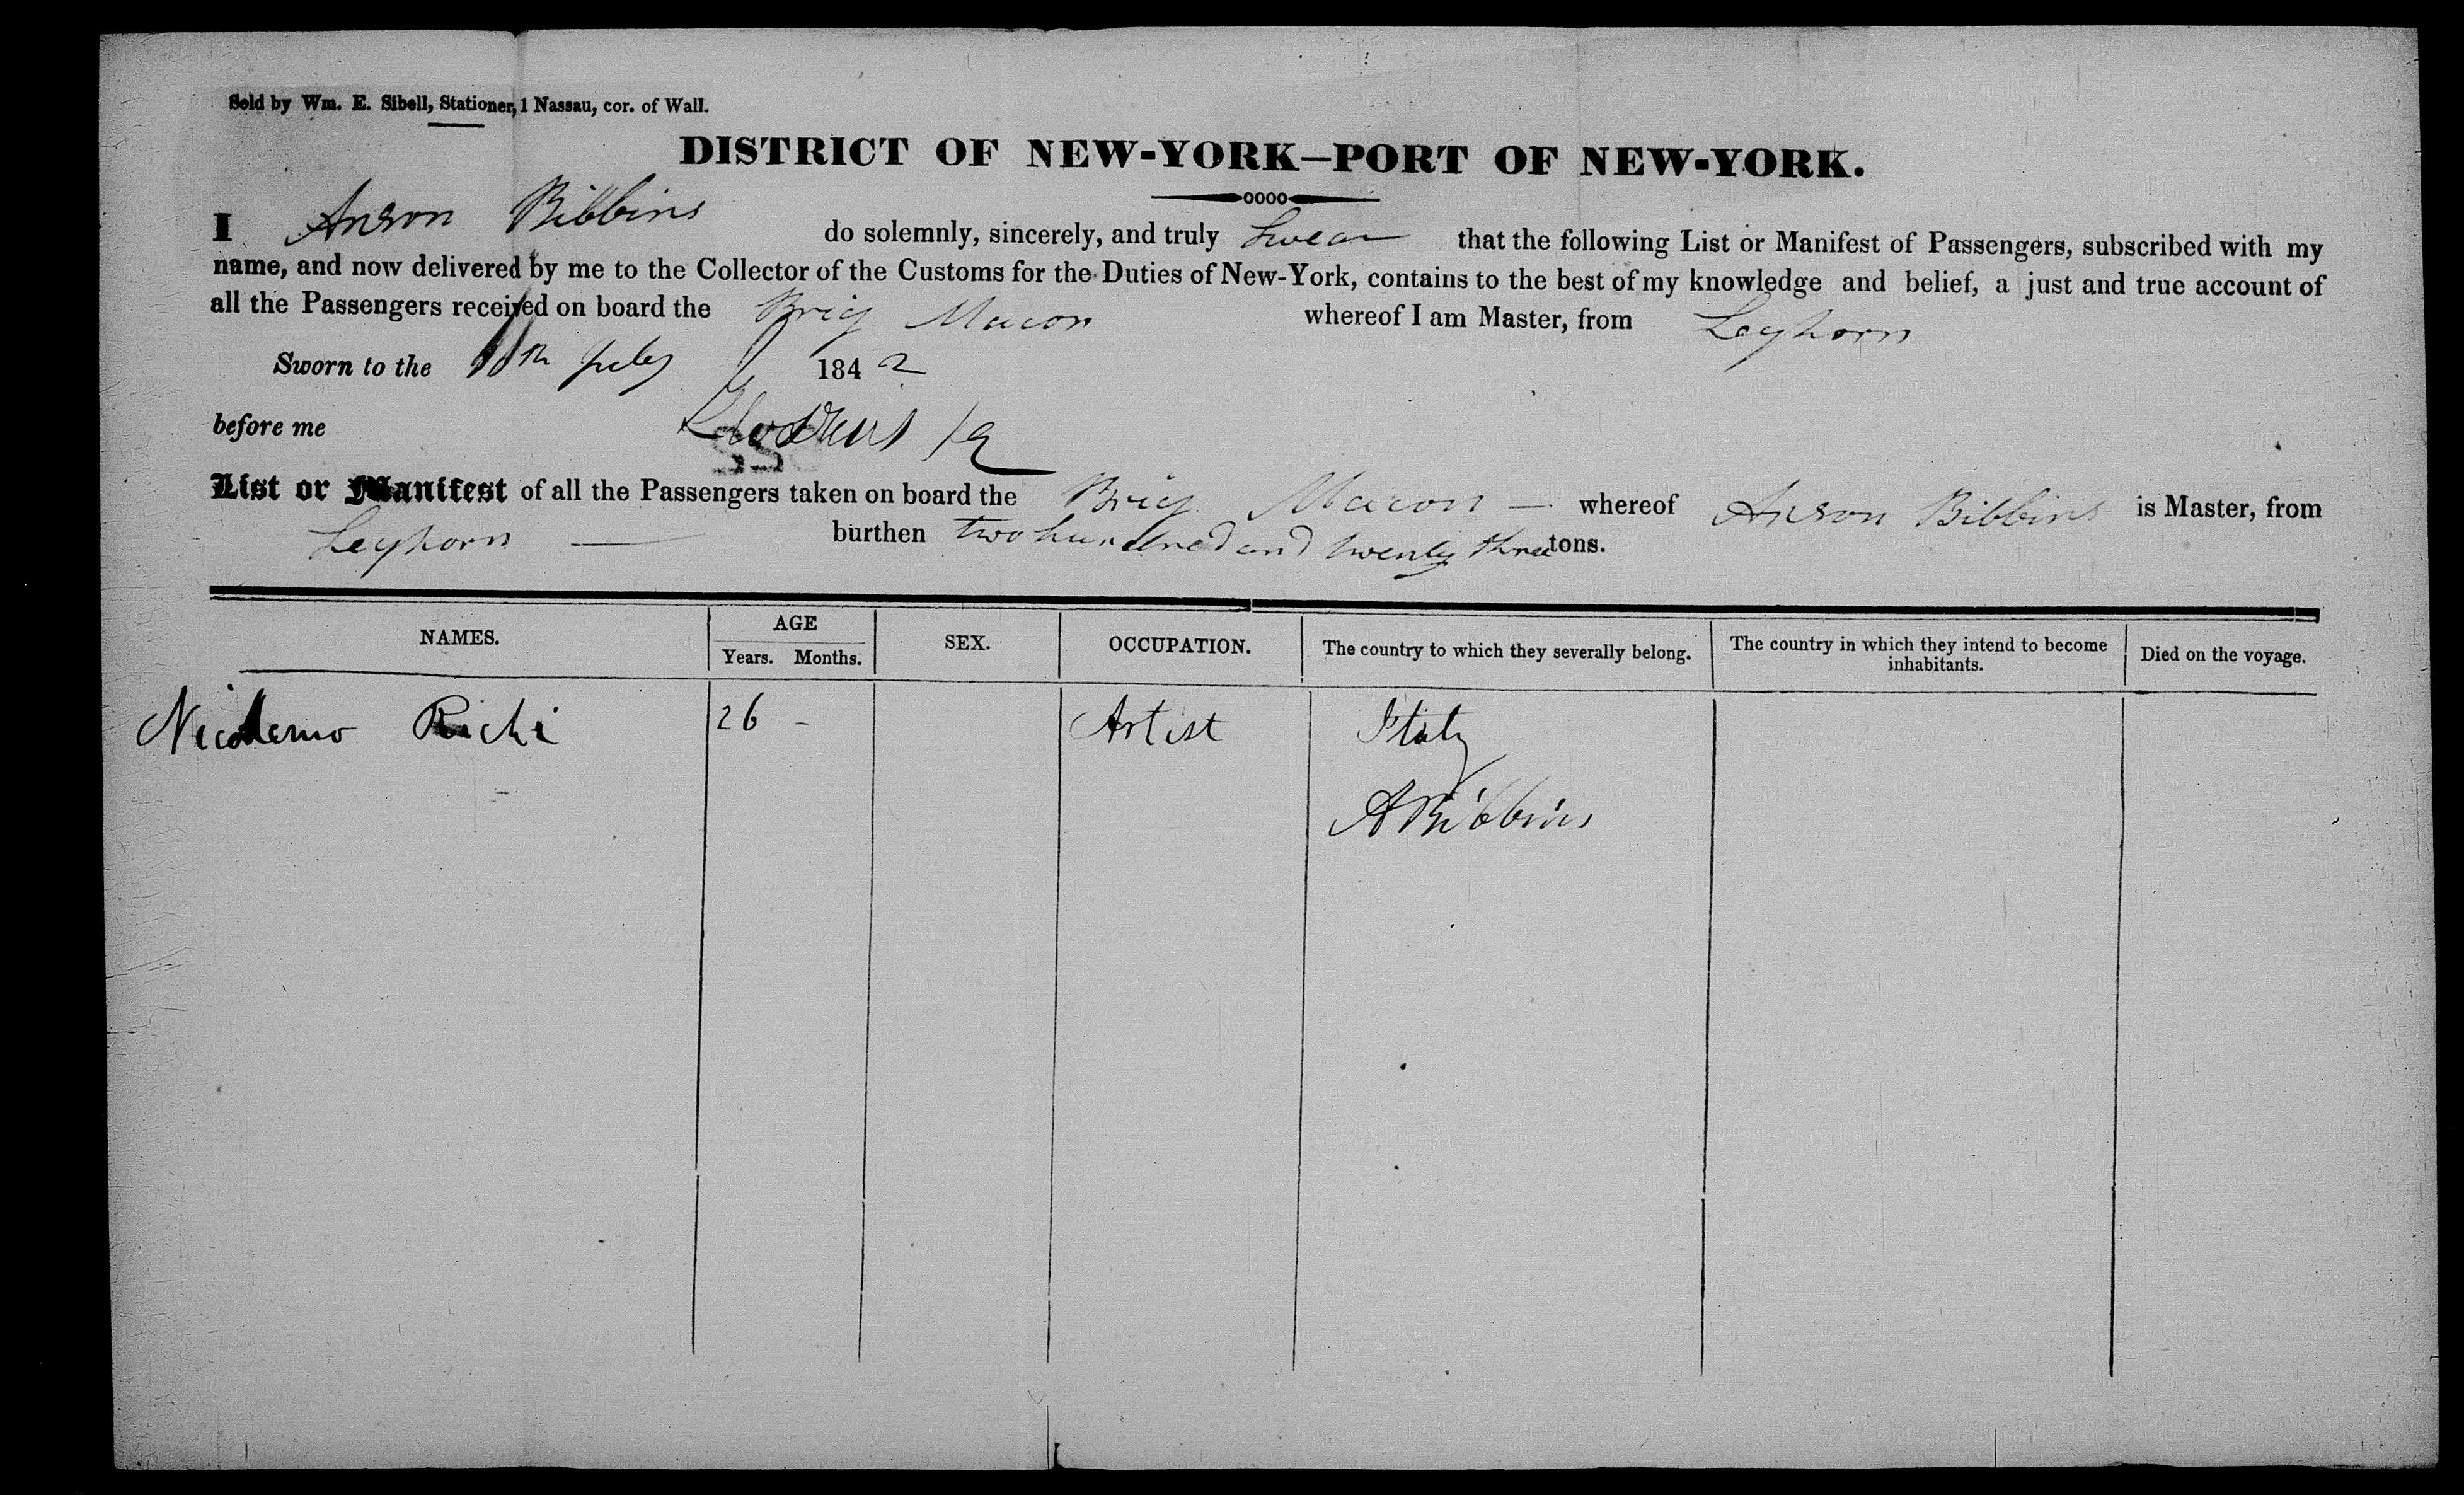 Sold by Wm. E. Sibell, Stationer, 1 Nassau, cor. of Wall.
DISTRICT OF NEW-YORK—PORT OF NEW-YORK.
I Anson Bibbins do solemnly, sincerely, and truly Swear that the following List or Manifest of Passengers, subscribed with my
name, and now delivered by me to the Collector of the Customs for the Duties of New-York, contains to the best of my knowledge and belief, a just and true account of
all the Passengers received on board the Brig Macon whereof I am Master, from Leghorn
Sworn to the 1842
before me
List or Manifest of all the Passengers taken on board the Brig Macon — whereof Anson Bibbins is Master, from
Leghorn — burthen two hundred and twenty three tons.
NAMES. AGE Years. Months. SEX. OCCUPATION. The country to which they severally belong. The country in which they intend to become inhabitants. Died on the voyage.
Nicodemo Richi 26 - Artist Italy
A Bibbins